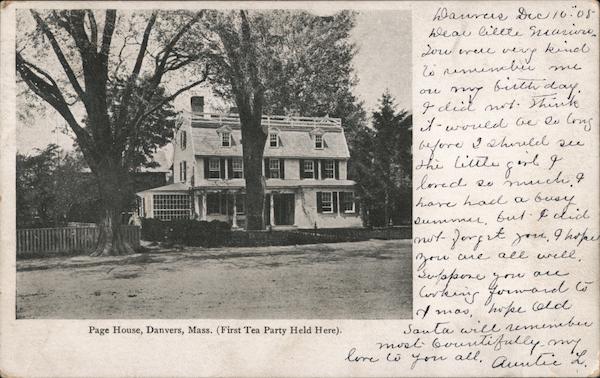 Danvers Dec 10" 05
Dear little Marion.
You were very kind
to remember me
on my birthday.
I did not think
it would be so long
before I should see
the little girl I
loved so much. I
have had a busy
summer, but I did
not forget you. I hope
you are all well.
Suppose you are
looking forward to
Xmas, hope Old
Santa will remember
most bountifully my
love to you all. Auntie L.
Page House, Danvers, Mass. (First Tea Party Held Here).